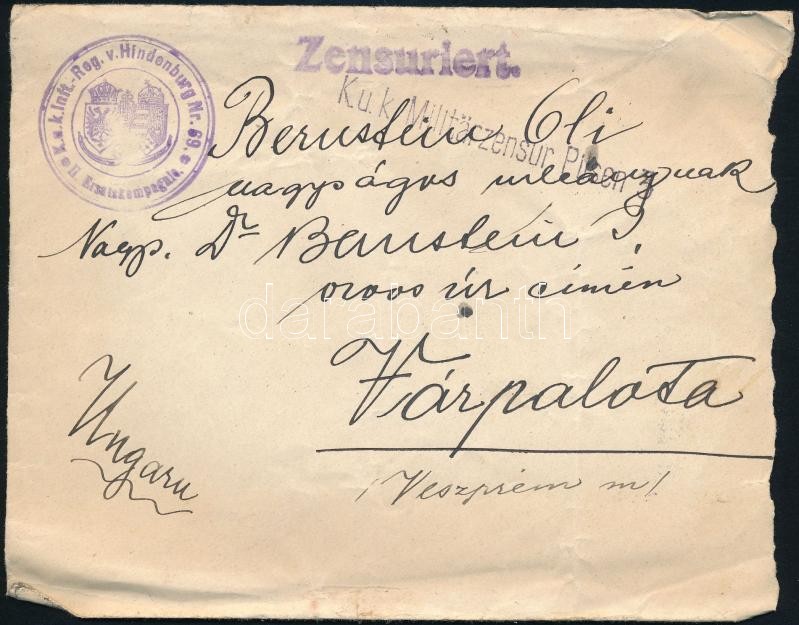 Zensuriert.
K.u.k. Inft.-Reg. v. Hindenburg Nr. 69.
II. Ersatzkompagnie.
K.u.k. Militärzensur Pilsen 3
Bernstein Oli
nagyságos urleánynak
Nagys. Dr Bernstein I.
orvos úr címén
darabanth
Várpalota
Ungarn
/Veszprém m/.